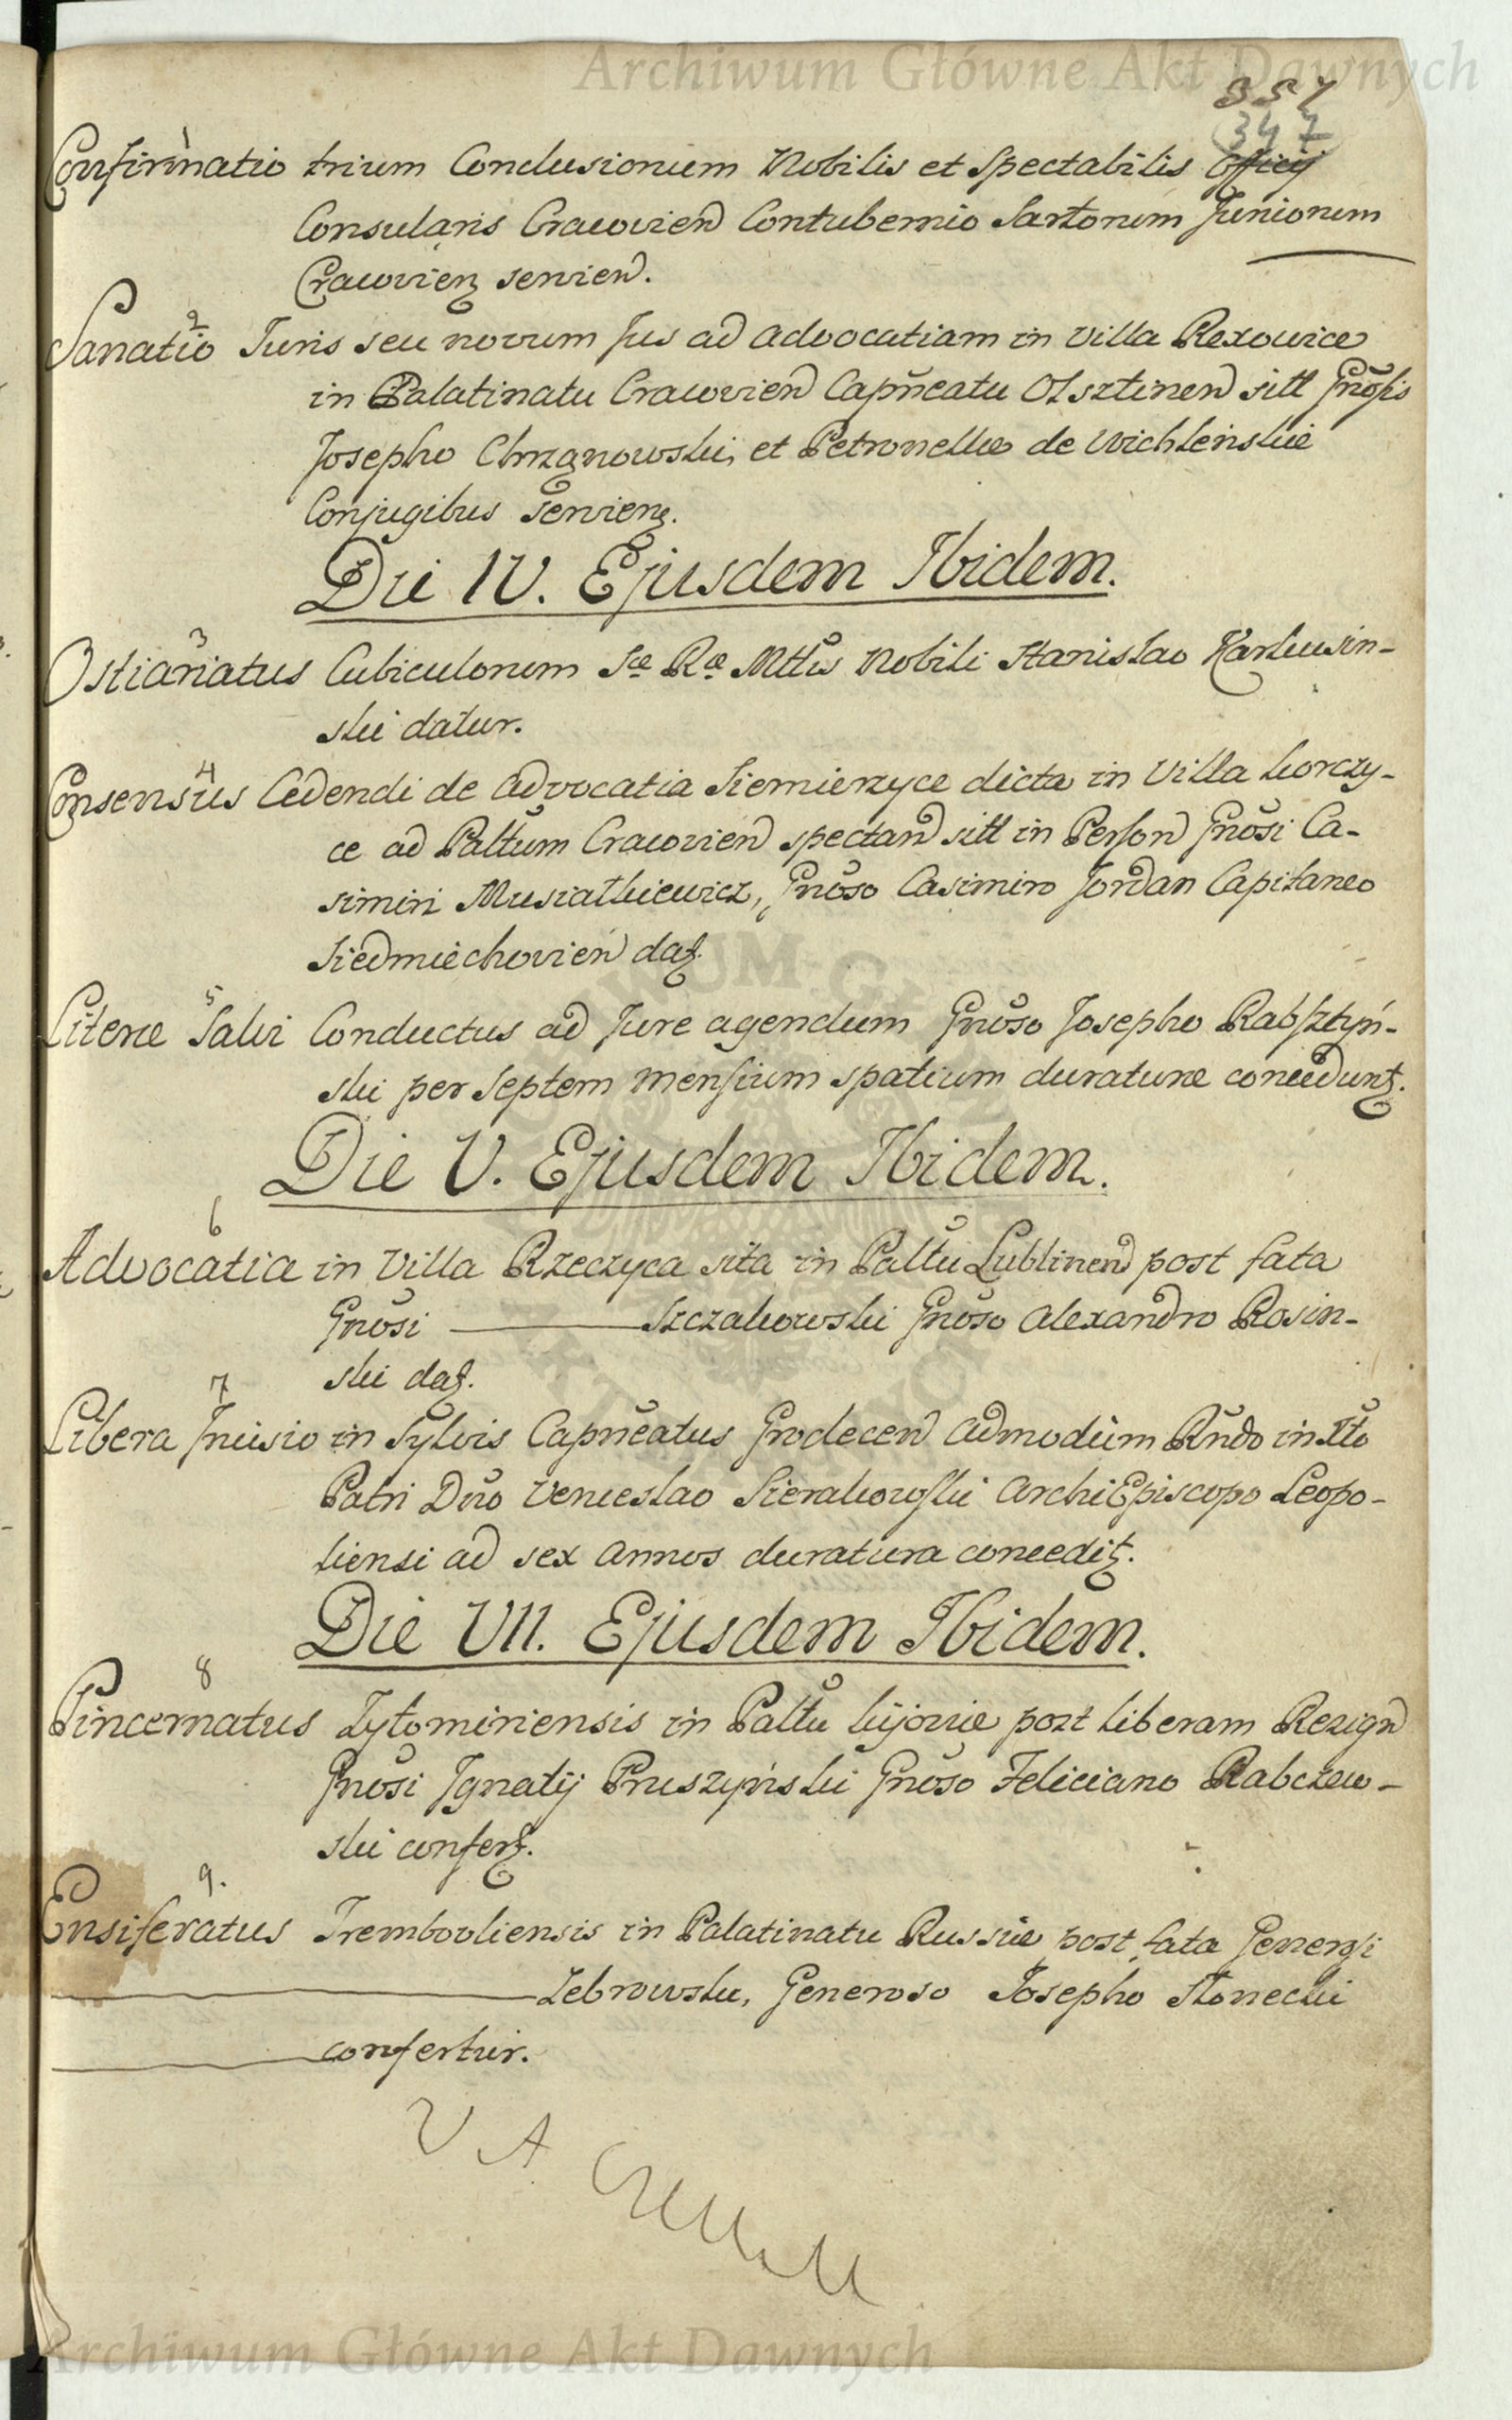 Archiwum Główne Akt Dawnych
357
347
1
Confirmatio trium Conclusionum Nobilis et Spectabilis Officij
Consularis Cracovien Contubernio Sartorum Juniorum
Cracovien servien.
2
Sanatio Juris seu novum Jus ad Advocatiam in Villa Rexowice
in Palatinatu Cracovien Capneatu Olsztinen sitt Gnosis
Josepho Chrząnowski, et Petronellæ de Wichlenskie
Conjugibus servien.
Die IV. Ejusdem Ibidem.
3
Ostiariatus Cubiculorum Sæ Ræ Mttis Nobili Stanislao Karkusin-
ski datur.
4
Consensus Cedendi de Advocatia Siemierzyce dicta in Villa Korczy-
ce ad Pałtum Cracovien spectan sitt in Person Gnosi Ca-
simiri Musiałkiewicz, Gnoso Casimiro Jordan Capitaneo
Siedmiechovien dat.
5
Literæ Salvi Conductus ad Jure agendum Gnoso Josepho Rabsztyń-
ski per septem mensium spatium duraturæ concedunt.
Die V. Ejusdem Ibidem.
6
Advocatia in Villa Rzeczyca sita in Palttu Lublinen post fata
Gnosi ——— Szczakowski Gnoso Alexandro Rosin-
ski dat.
7
Libera Incisio in Sylvis Capneatus Grodecen Admodum Rndo in Xto
Patri Dno Venceslao Sierakowski ArchiEpiscopo Leopo-
liensi ad sex Annos duratura concedit.
Die VII. Ejusdem Ibidem.
8
Pincernatus Zytomiriensis in Palttu Kijoviæ post liberam Rezign
Gnosi Ignatij Pruszyński Gnoso Feliciano Rabczew-
ski confert.
9.
Ensiferatus Trembovliensis in Palatinatu Russiæ post fata Generosi
——— Zebrowski, Generoso Josepho Słonecki
confertur.
V A
Archiwum Główne Akt Dawnych